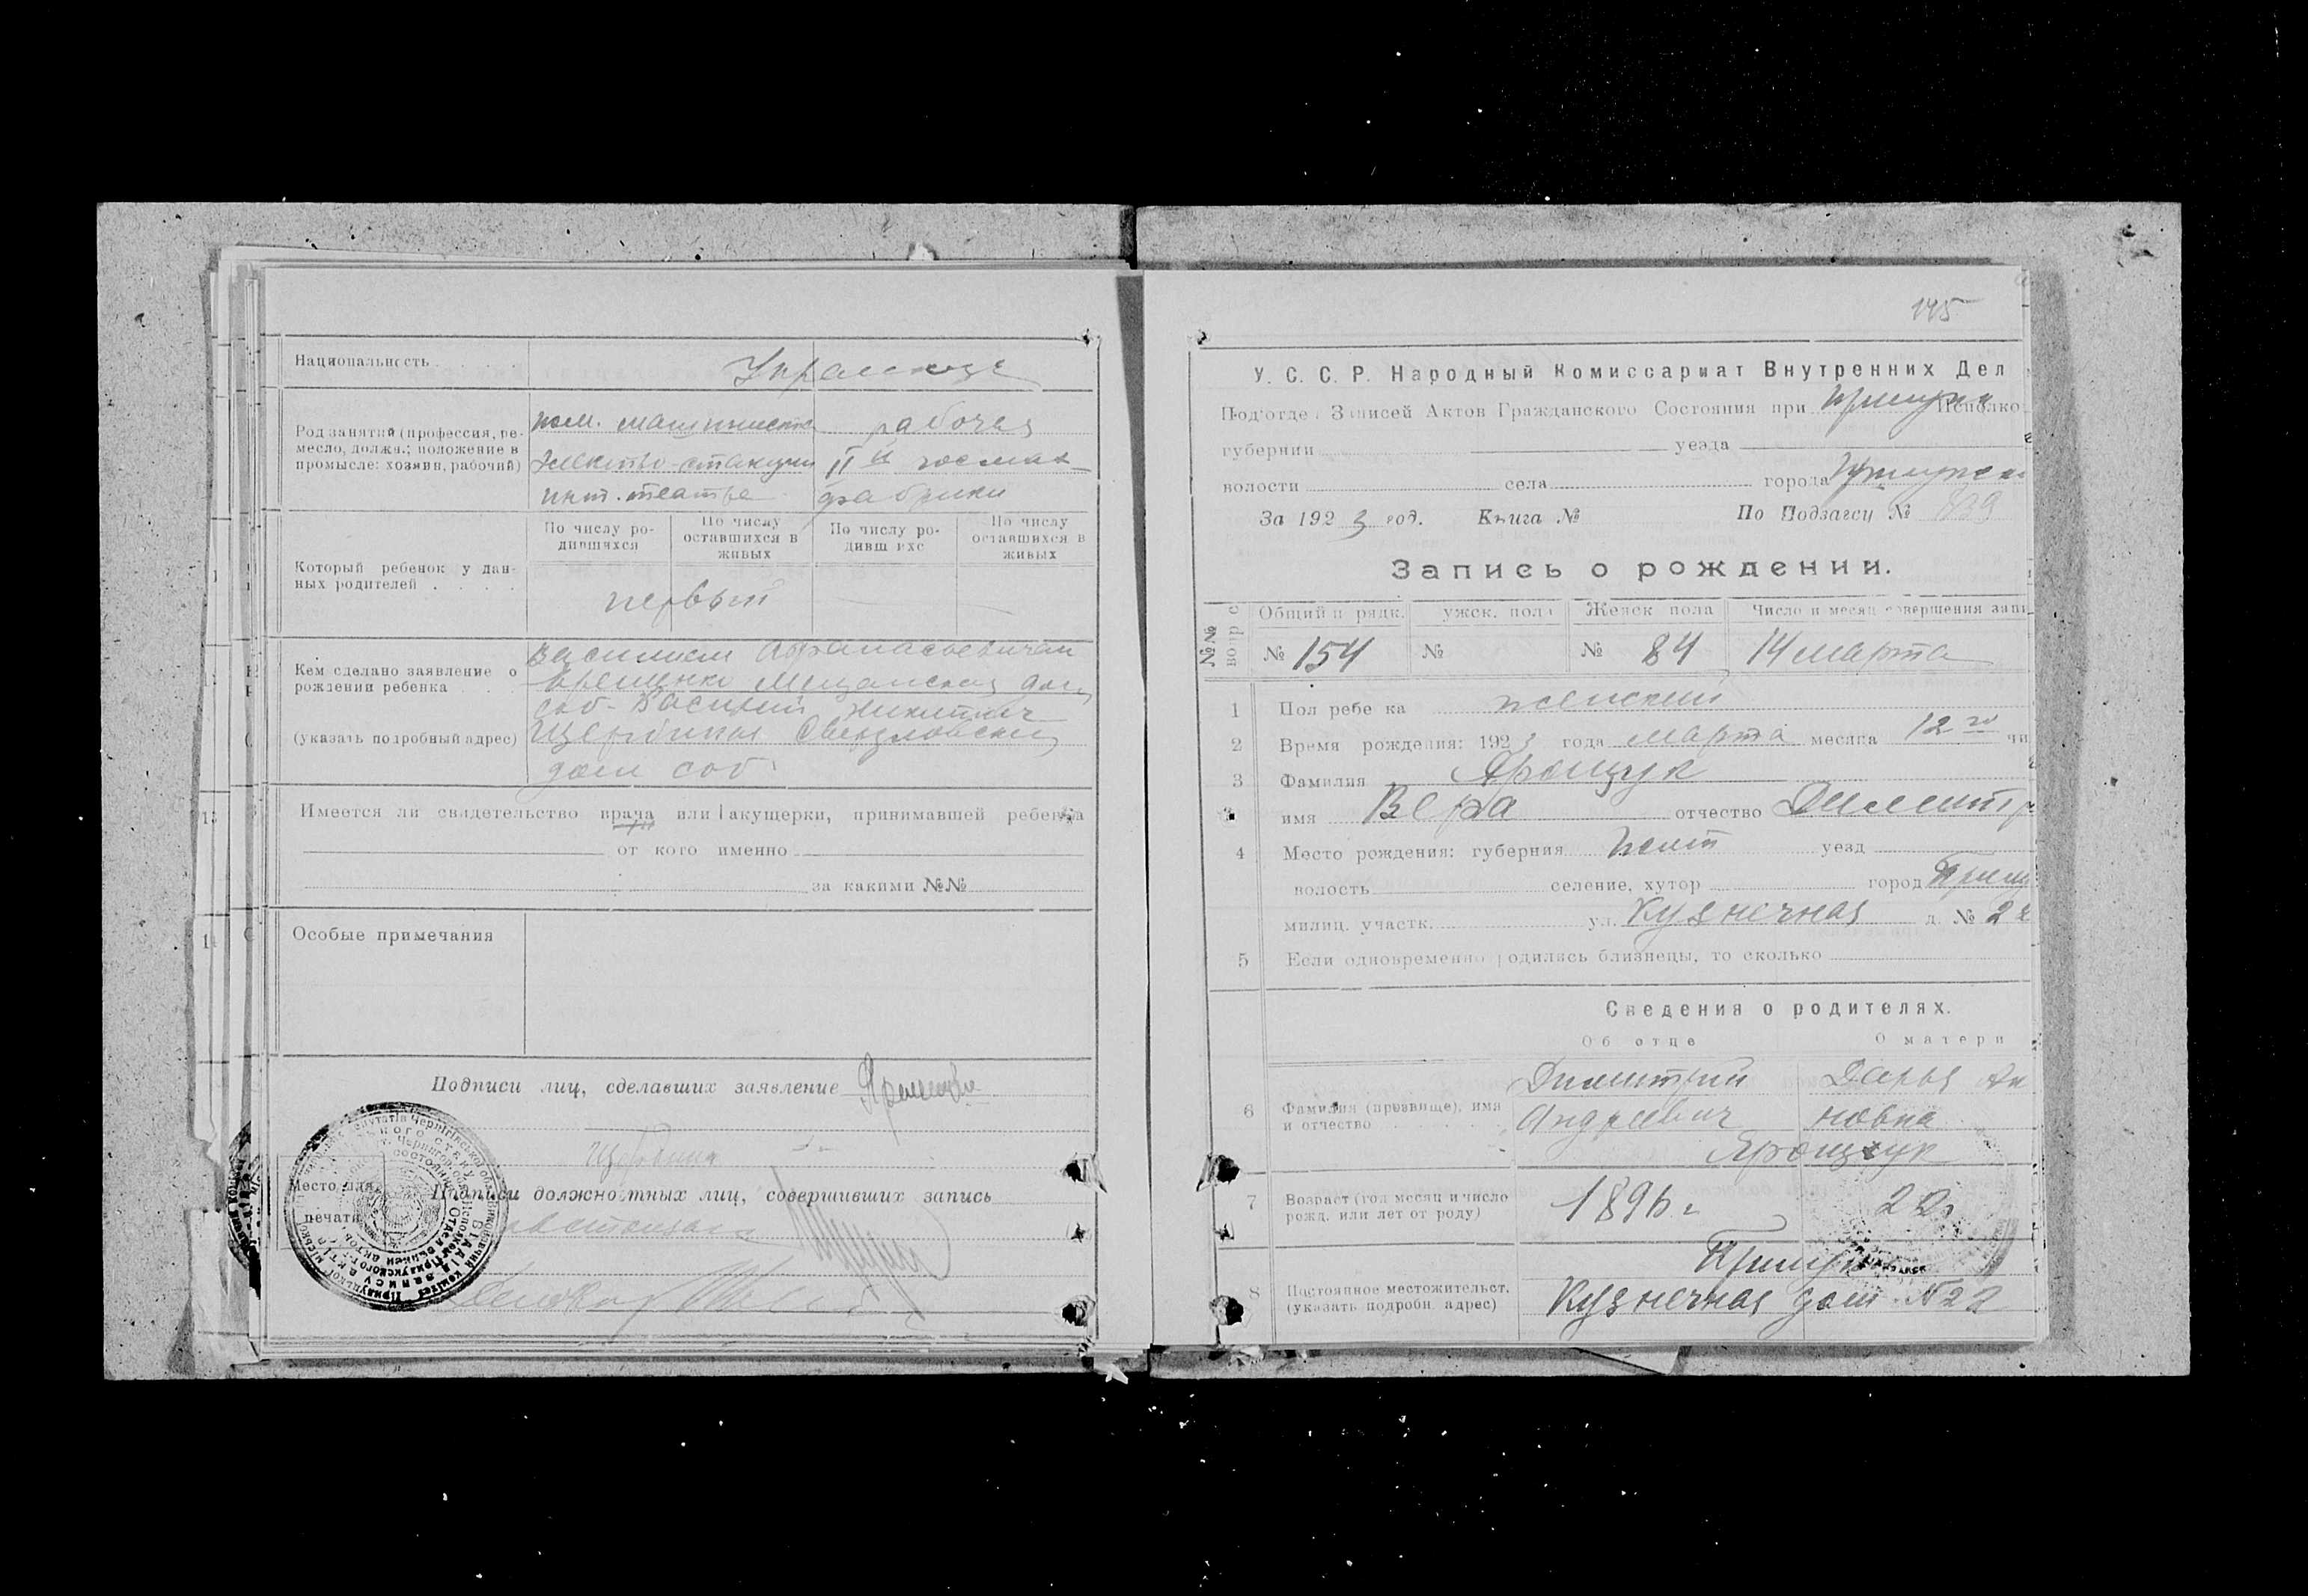 Национальность
Украинцы
Род занятий (профессия, ре-
месло, должн.; положение в
промысле: хозяин, рабочий)
пом. машиниста
электро-станции
инт. театра
рабочая
II й госмах
фабрики
Который ребенок у дан-
ных родителей
По числу ро-
дившихся
По числу
оставшихся в
живых
По числу ро-
дивш ихс
По числу
оставшихся в
живых
первый
Кем сделано заявление о
рождении ребенка
(указать подробный адрес)
Василием Афанасьевичем
Мещанская дом
соб. Василий Никитич
Щербина Свердловская
дом соб.
Имеется ли свидетельство врача или акушерки, принимавшей ребенка
от кого именно
за какими №№
Особые примечания
Подписи лиц, сделавших заявление
Щербина
Место для
печати
Подписи должностных лиц, совершивших запись
145
У. С. С. Р. Народный Комиссариат Внутренних Дел
Под'отдел Записей Актов Гражданского Состояния при Исполко
губернии уезда
волости села города
За 1923 год. Книга № По Подзагсу № 839
Запись о рождении.
№№
Общий п рядк. ужск. пола Женск пола Число и месяц совершения запи
№ 154 № № 84 14 марта
1 Пол ребе ка женский
2 Время рождения: 1923 года марта месяца 12 го чи
3 Фамилия Ярощук
имя Вера отчество Димитр
4 Место рождения: губерния уезд
волость селение, хутор город Прилу
милиц. участк. ул. Кузнечная д. № 22
5 Если одновременно родились близнецы, то сколько
Сведения о родителях.
Об отце О матери
6 Фамилия (прозвище), имя
и отчество
Димитрий
Андреевич
Дарья
новна
Ярощук
7 Возраст (год месяц и число
рожд. или лет от роду)
1896 г. 22
8 Постоянное местожительст.
(указать подробн. адрес)
Кузнечная дом № 22